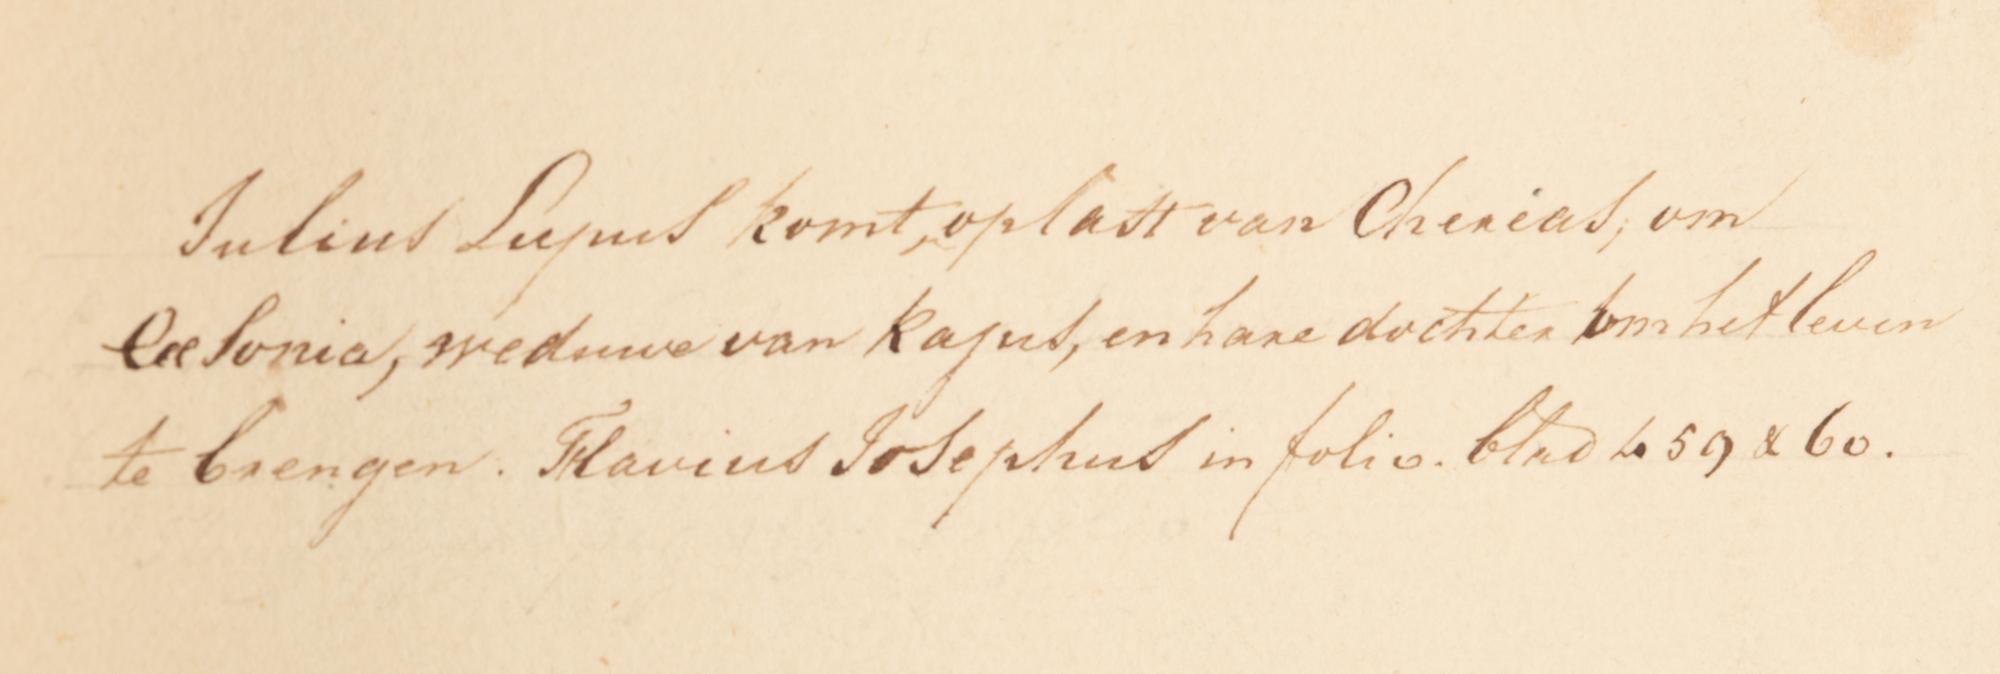 Julius Lupus komt, op last van Chereas, om
Cæsonia, weduwe van Kajus, en hare dochter om het leven
te brengen. Flavius Josephus in folio. blad 459 & 60.